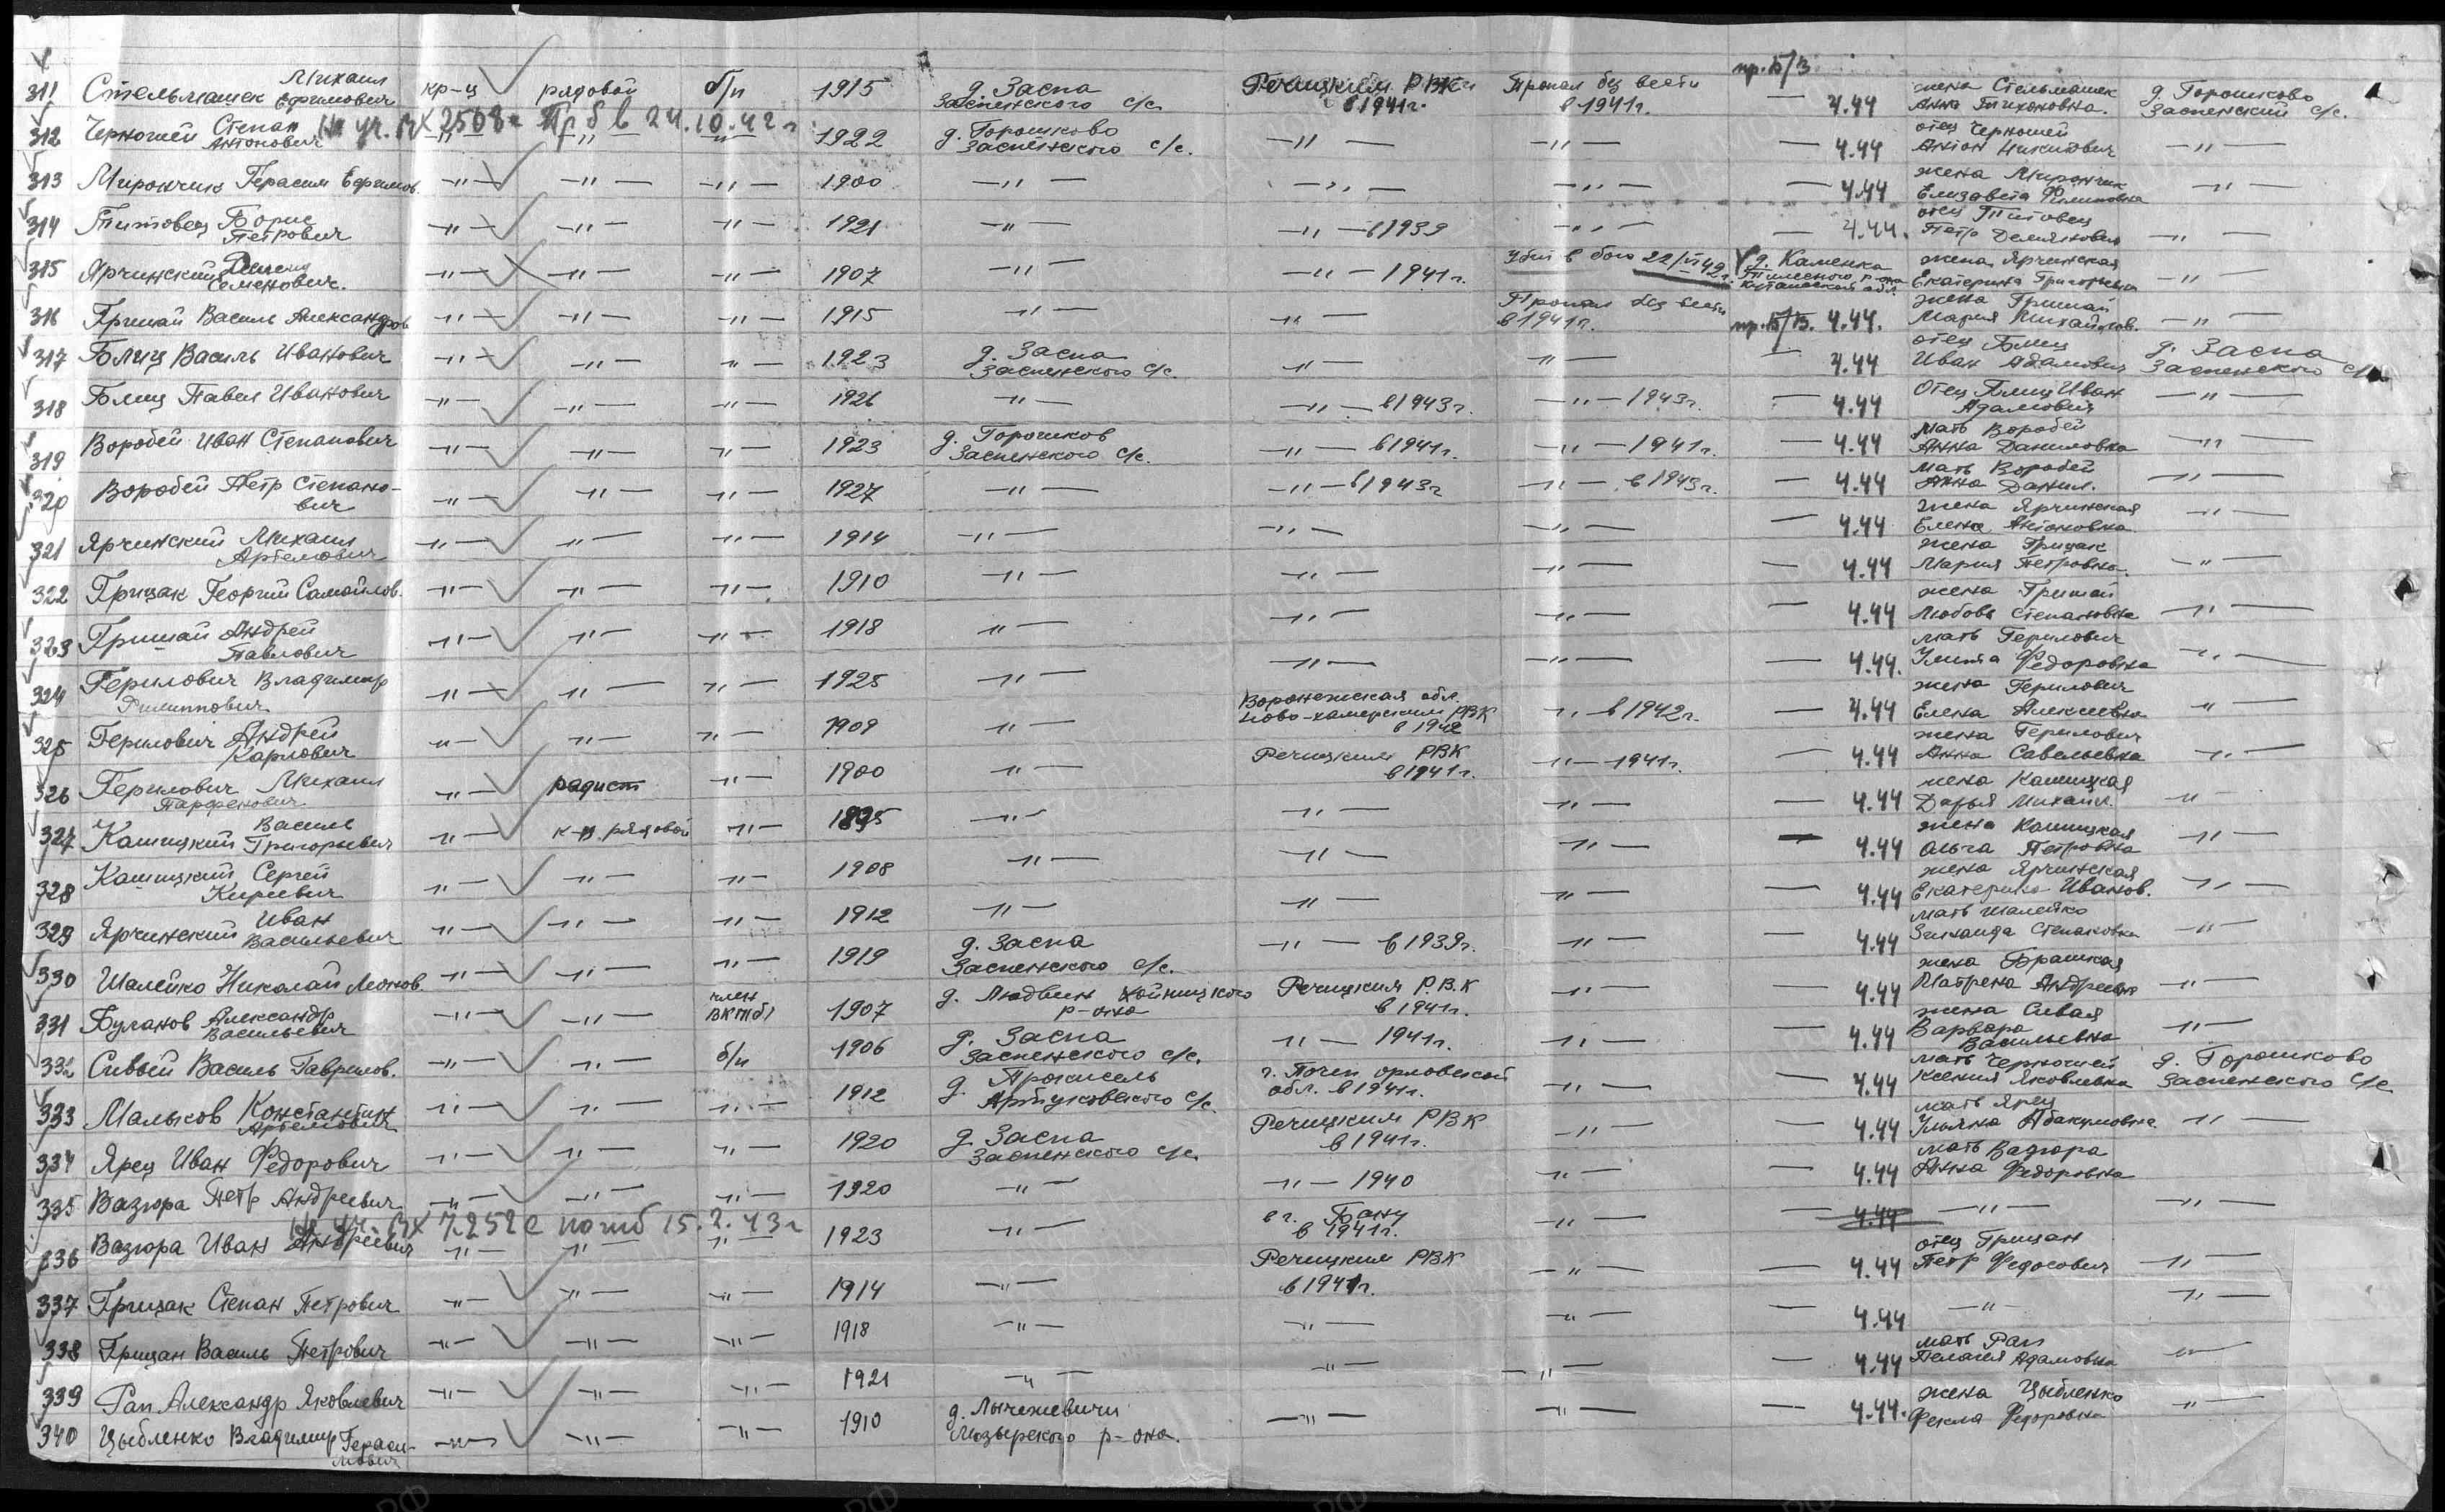 311 Стельмашек Михаил Ефимович кр-ц рядовой б/п 1915 д. Заспа Заспенского с/с. Речицким РВК в 1941г. Пропал без вести в 1941г. пр. б/в — 4.44 жена Стельмашек Анна Тихоновна. д. Горошково Заспенский с/с.
На уч. Вх 2508с Пр б в 24.10.42 г.
312 Черношей Степан Антонович —"— —"— —"— 1922 д. Горошково Заспенского с/с. —"— —"— — 4.44 отец Черношей Антон Никитович —"—
313 Мирончик Герасим Ефимов. —"— —"— —"— 1900 —"— —"— —"— — 4.44 жена Мирончик Елизавета Филиповна —"—
314 Титовец Борис Петрович —"— —"— —"— 1921 —"— —"— в 1939 —"— — 4.44. отец Титовец Петр Демьянович —"—
315 Ярчинский Семенович. —"— —"— —"— 1907 —"— —"— 1941г. Убит в бою 22/VI 42г. д. Каменка жена Ярчинская Екатерина Григорьевна —"—
316 Гришай Василь Александров —"— —"— —"— 1915 —"— —"— Пропал без вести в 1941г. пр. б/в. 4.44. жена Гришай Мария Михайлов. —"—
317 Блиц Василь Иванович —"— —"— —"— 1923 д. Заспа Заспенского с/с. —"— —"— — 4.44 отец Блиц Иван Адамович д. Заспа Заспенского с/с
318 Блиц Павел Иванович —"— —"— —"— 1926 —"— —"— в 1943г. —"— 1943г. — 4.44 Отец Блиц Иван Адамович —"—
319 Воробей Иван Степанович —"— —"— —"— 1923 д. Горошков Заспенского с/с. —"— в 1941г. —"— 1941г. — 4.44 мать Воробей Анна Даниловна —"—
320 Воробей Петр Степанович —"— —"— —"— 1927 —"— —"— в 1943г —"— в 1943г. — 4.44 мать Воробей Анна Данил. —"—
321 Ярчинский Михаил Артемович —"— —"— —"— 1914 —"— —"— —"— — 4.44 жена Ярчинская Елена Антоновна —"—
322 Грицак Георгий Самойлов. —"— —"— —"— 1910 —"— —"— —"— — 4.44 жена Грицак Мария Петровна. —"—
323 Гришай Андрей Павлович —"— —"— —"— 1918 —"— —"— —"— — 4.44 жена Гришай Любовь Степановна —"—
324 Герилович Владимир Филиппович —"— —"— —"— 1925 —"— —"— —"— — 4.44. мать Герилович Улита Федоровна —"—
325 Герилович Андрей Карлович —"— —"— —"— 1909 —"— Воронежская обл. Ново-хоперским РВК в 1942 —"— в 1942г. — 4.44 жена Герилович Елена Алексеевна —"—
326 Герилович Михаил Парфенович —"— радист —"— 1900 —"— Речицким РВК в 1941г. —"— 1941г. — 4.44 жена Герилович Анна Савельевна —"—
327 Кашицкий Василь Григорьевич —"— рядовой —"— 1895 —"— —"— —"— — 4.44 жена Кашицкая Дарья Михайл. —"—
328 Кашицкий Сергей Киреевич —"— —"— —"— 1908 —"— —"— —"— — 4.44 жена Кашицкая Ольга Петровна —"—
329 Ярчинский Иван Васильевич —"— —"— —"— 1912 —"— —"— —"— — 4.44 жена Ярчинская Екатерина Иванов. —"—
330 Шалейко Николай Леонов. —"— —"— —"— 1919 д. Заспа Заспенского с/с. —"— в 1939г. —"— — 4.44 мать Шалейко Зинаида Степановна —"—
331 Буланов Александр Васильевич —"— —"— член ВКП(б) 1907 д. Людвин Хойницкого р-она Речицким Р.В.К в 1941г. —"— — 4.44 жена Матрена Андреевн —"—
332 Сивый Василь Гаврилов. —"— —"— б/п 1906 д. Заспа Заспенского с/с. —"— 1941г. —"— — 4.44 жена Сивая Варвара Васильевна —"—
333 Мальков Константин Артемович —"— —"— —"— 1912 д. Артуковского с/с. г. Почеп орловской обл. в 1941г. —"— — 4.44 мать Черношей Ксения Яковлевна д. Горошково Заспенского с/с
334 Ярец Иван Федорович —"— —"— —"— 1920 д. Заспа Заспенского с/с. Речицким РВК в 1941г. —"— — 4.44 мать Ярец Ульяна Абакумовна —"—
335 Вазюра Петр Андреевич —"— —"— —"— 1920 —"— —"— 1940 —"— — 4.44 мать Вазюра Анна Федоровна
На уч. Вх 7252с погиб 15.2.43г
336 Вазюра Иван Андреевич —"— —"— —"— 1923 —"— в г. Баку в 1941г. —"— 4.44 —"— —"—
337 Грицак Степан Петрович —"— —"— —"— 1914 —"— Речицким РВК в 1941г. —"— — 4.44 отец Грицан Петр Федосович —"—
338 Грицан Василь Петрович —"— —"— —"— 1918 —"— —"— —"— — 4.44 —"— —"—
339 Рап Александр Яковлевич —"— —"— —"— 1921 —"— —"— —"— — 4.44 мать Рап Пелагея Адамовна —"—
340 Цыбленко Владимир Герасимович —"— —"— —"— 1910 д. Мозырского р-она. —"— —"— — 4.44. жена Цыбленко Фекла Федоровна —"—